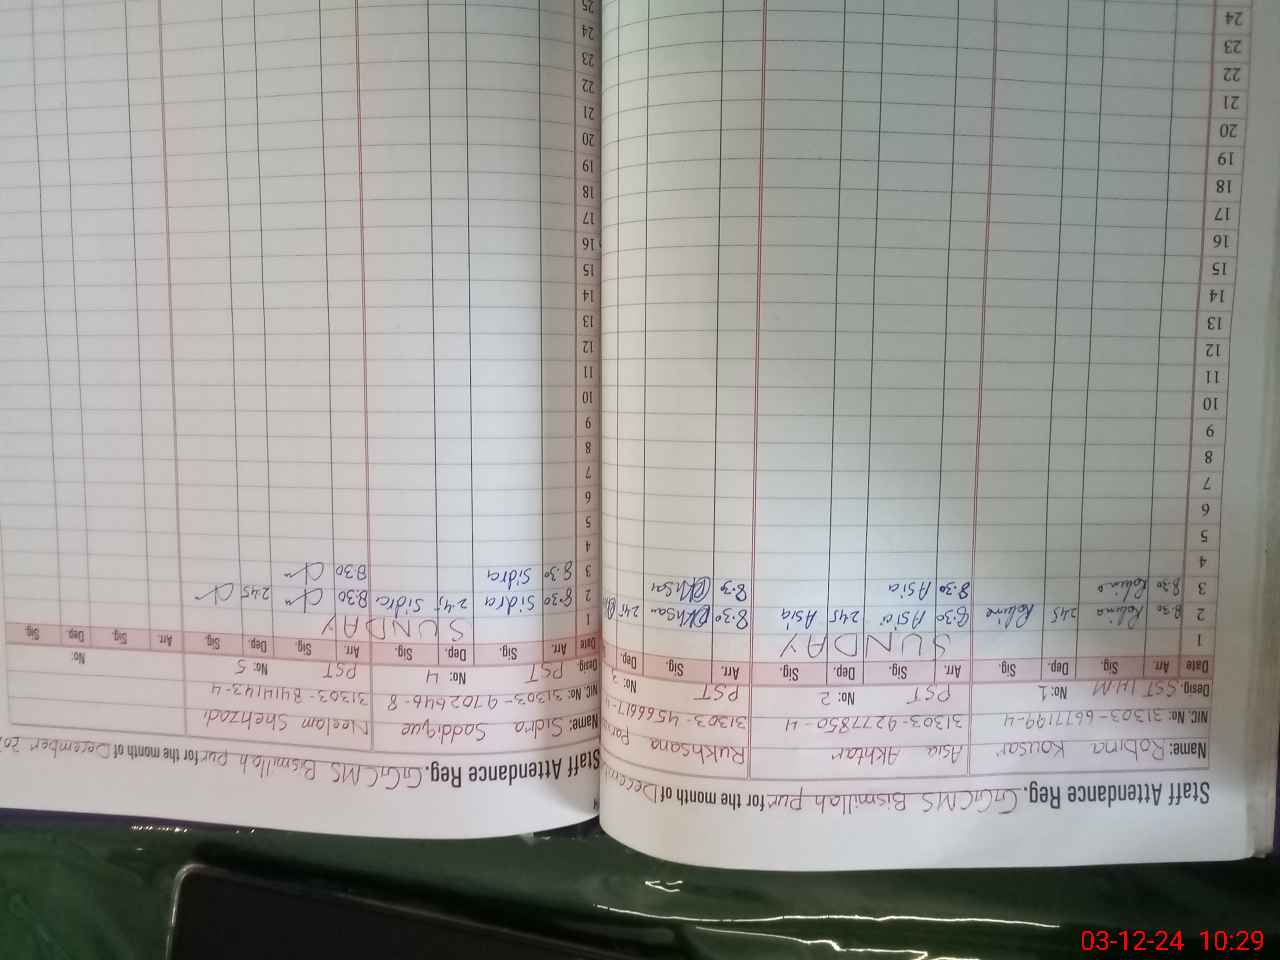 Staff Attendance Reg. GGCMS Bismillah Pur for the month of Decem
Name: Robina Kousar Asia Akhtar Rukhsana
NIC. No: 31303-6677199-4 31303-9277850-4
Desig. SST IHM No: 1 PST No: 2 PST No: 3
Date Arr. Sig. Dep. Sig. Arr. Sig. Dep. Sig. Arr. Sig. Dep.
1 SUNDAY
2 8:30 Robina 2:45 Robina 8:30 Asia 2:45 Asia 8:30 2:45
3 8:30 Robina 8:30 Asia 8:30
4
5
6
7
8
9
10
11
12
13
14
15
16
17
18
19
20
21
22
23
24
Staff Attendance Reg. GGCMS Bismillah Pur for the month of December
Name: Sidra Saddique Neelam Shehzadi
NIC. No: 31303-9702646-8 31303-8411143-4
Desig: PST No: 4 PST No: 5 No:
Date Arr. Sig. Dep. Sig. Arr. Sig. Dep. Sig. Arr. Sig. Dep. Sig.
1 SUNDAY
2 8:30 Sidra 2:45 Sidra 8:30 2:45
3 8:30 Sidra 8:30
4
5
6
7
8
9
10
11
12
13
14
15
16
17
18
19
20
21
22
23
24
25
03-12-24 10:29